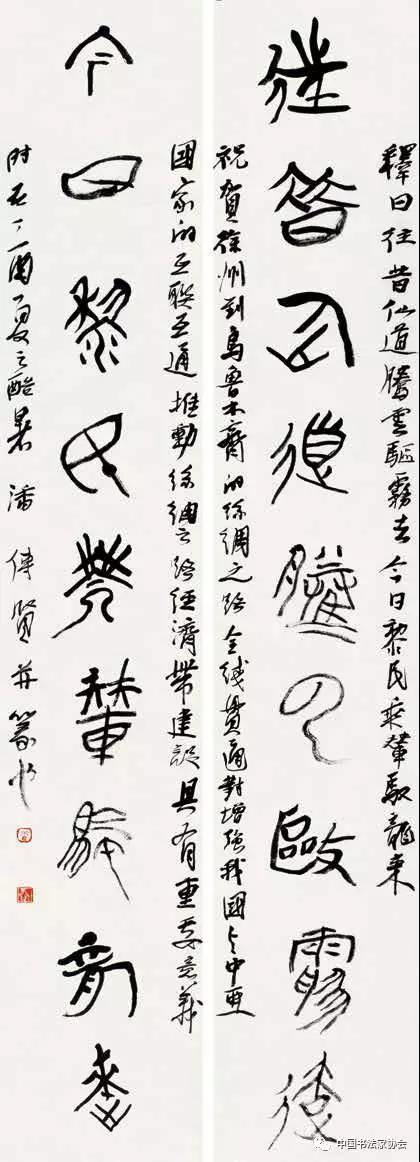 釋曰往昔仙道騰雲驅霧去今日黎民乘輦馭龍來
往昔仙道騰雲驅霧去
祝賀徐州到烏魯木齊的絲綢之路全綫貫通對增強我國与中亞
國家的互聯互通推動絲綢之路經濟帶建設具有重要意義
今日黎民乘輦馭龍來
时在丁酉夏之酷暑潘傳賢并篆书
中国书法家协会